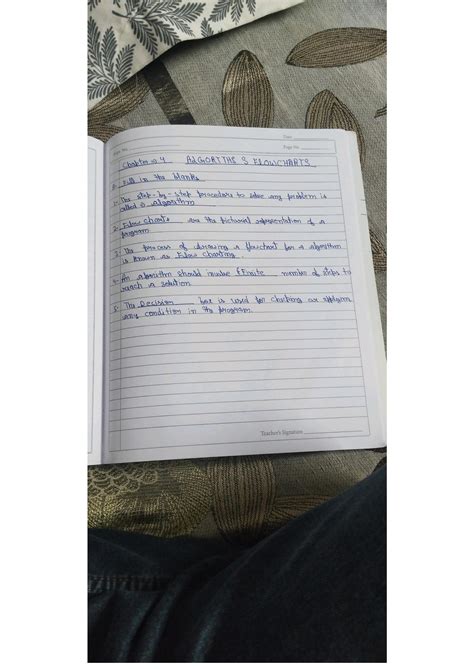 Date
Page No.
Chapter :- 4 ALGORTTHS & FLOWCHARTS
Fill in the blanks
1- The step-by-step procedure to solve any problem is
called a algorithm
2- Flow charts are the pictorial representation of a
program
3- The process of drawing a flowchart for a algorithm
is known as Flow charting.
4- An algorithm should involve fEnite number of steps to
reach a solution
5- The Decision box is used for checking or
any condition in the program.
Teacher's Signature